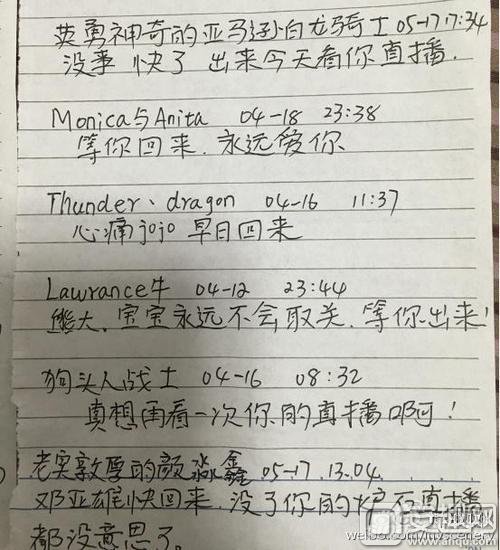 英勇神奇的亚马逊白龙骑士 05-17 17:34
没事 快了 出来今天看你直播.
Monica与Anita 04-18 23:38
等你回来.永远爱你
Thunder、dragon 04-16 11:37
心痛jojo 早日回来
Lawrance牛 04-12 23:44
熊大.宝宝永远不会取关.等你出来!
狗头人战士 04-16 08:32
真想再看一次你的直播啊!
老实敦厚的颜淼鑫 05-17.13.04.
邓亚雄快回来.没了你的炉石直播
都没意思了。
www.anqu.com